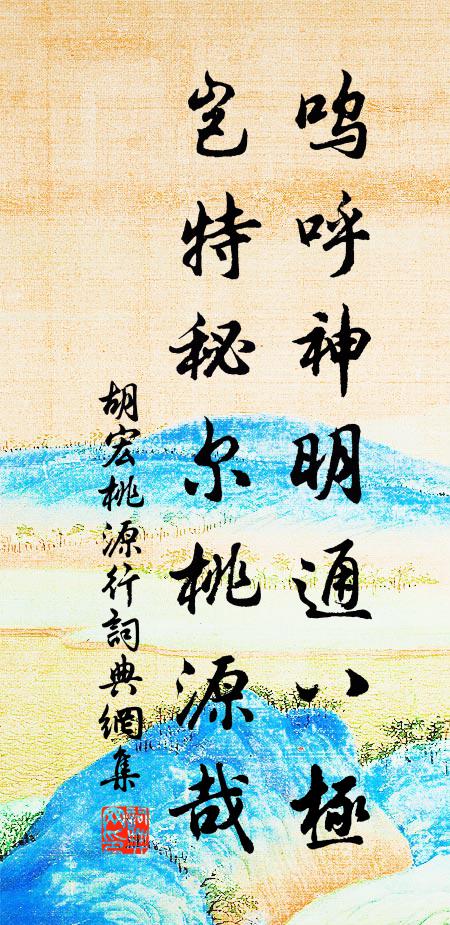 呜呼神明通八極
岂特秘尔桃源哉
胡宏桃源行詞典網集